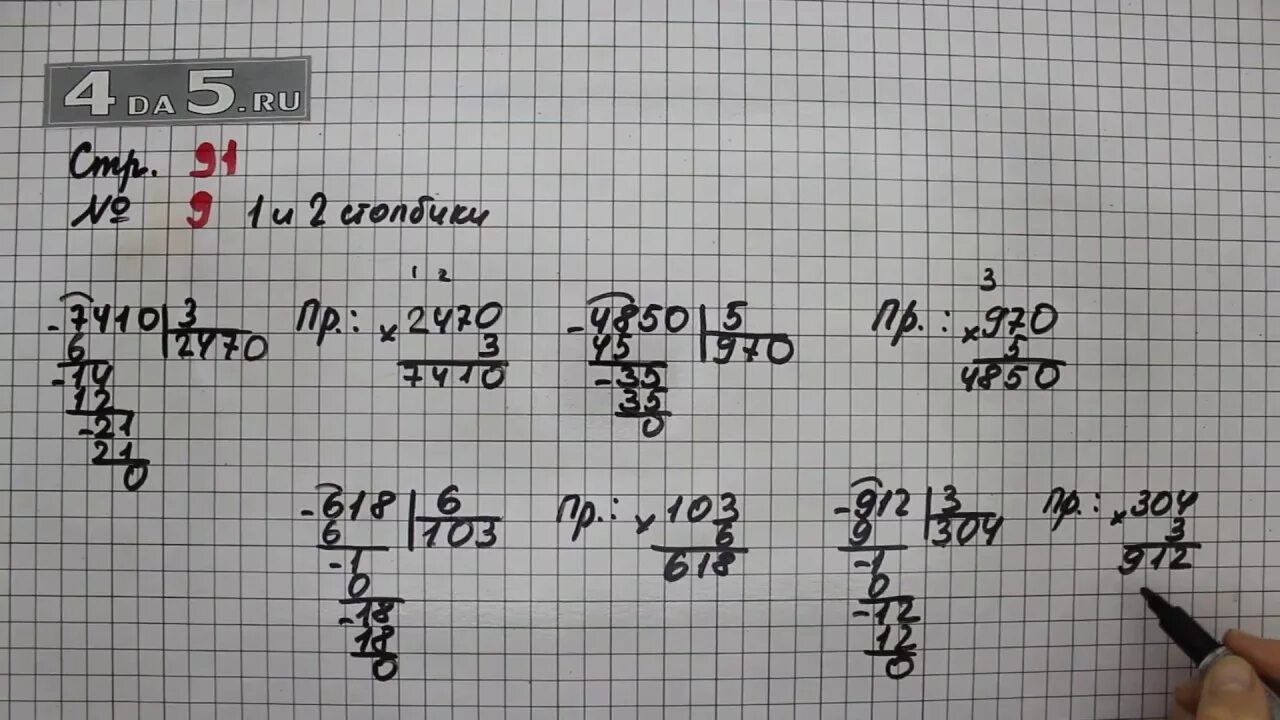 4DA5.RU
Стр. 91
№ 9 1 и 2 столбики
1 2
3
-7410 3 Пр.: x 2470 -4850 5 Пр.: x 970
6 2470 3 45 970 5
-14 7410 -35 4850
12 35
-21 0
21
0
-618 6 Пр.: x 103 -912 3 Пр.: x 304
6 103 6 9 304 3
-1 618 -1 912
0 0
-18 -12
18 12
0 0